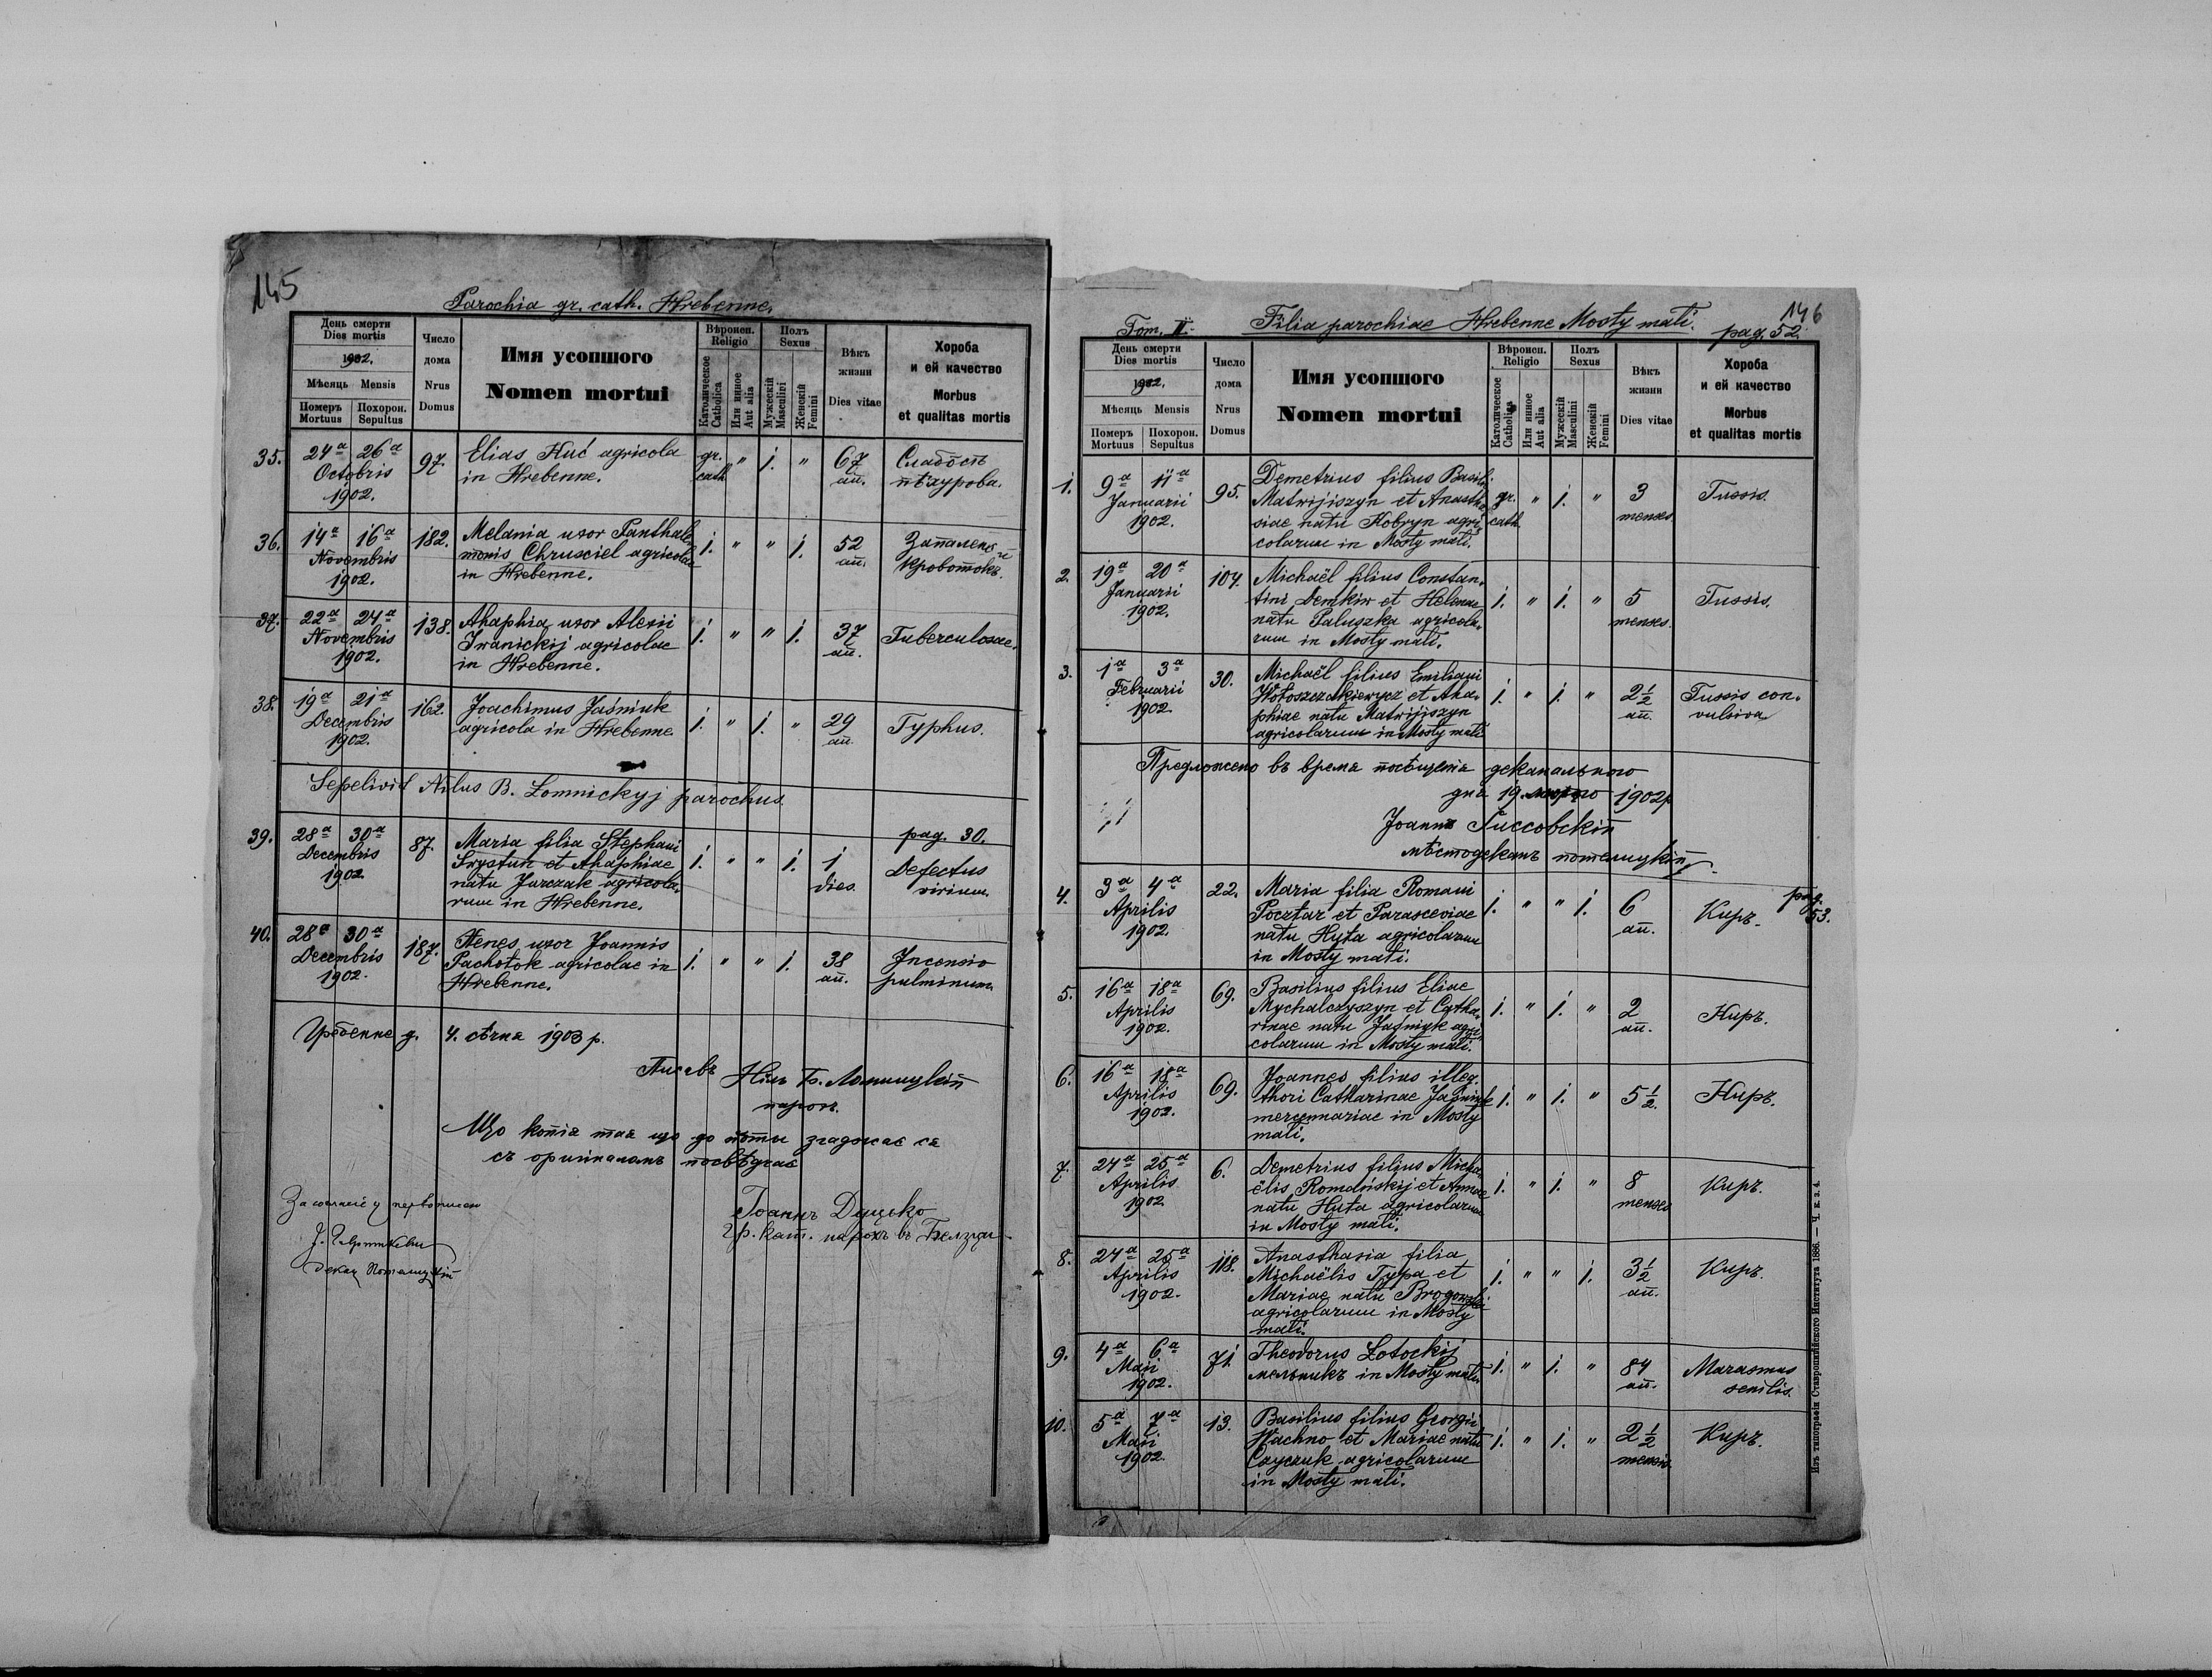 145
Parochia gr. cath. Hrebenne.
День смерти
Dies mortis
1902.
Мѣсяць Mensis
Померъ Похорон.
Mortuus Sepultus
Число
дома
Nrus
Domus
Имя усопшого
Nomen mortui
Вѣроисп.
Religio
Католическое
Catholica
Или инное
Aut alia
Полъ
Sexus
Мужескій
Masculini
Женскій
Femini
Вѣкъ
жизни
Dies vitae
Хороба
и ей качество
Morbus
et qualitas mortis
35. 24ª 26ª
Octobris
1902.
97.
Elias Huć agricola
in Hrebenne.
gr.
cath.
" 1. "
67
an.
Слабость
36. 14ª 16ª
Novembris
1902.
182.
Melania uxor Panthale
monis Chrusciel agricolae
in Hrebenne.
1. " " 1.
52
an.
37. 22ª 24ª
Novembris
1902.
138.
Ahaphia uxor Alexii
Iwanickij agricolae
in Hrebenne.
1. " " 1.
37
an.
Tuberculosae.
38. 19ª 21ª
Decembris
1902.
162.
Joachimus Jaśniuk
agricola in Hrebenne.
1. " 1. "
29
an.
Typhus.
Sepelivit Nilus B. Lomnickyj parochus.
39. 28ª 30ª
Decembris
1902.
87.
Maria filia Stephani
Srystun et Ahaphiae
natu Jurczak agricola-
rum in Hrebenne.
1. " " 1.
1
dies.
pag. 30.
Defectus
virium.
40. 28ª 30ª
Decembris
1902.
187.
Henes uxor Joannis
Pachotok agricolae in
Hrebenne.
1. " " 1.
38
an.
Incensio
pulminum.
Гребенне д. 4. сѣчня 1903 р.
Нилъ Б. Ломницкій
парохъ.
Що копія тая що до йоты згаджає ся
съ оригиналомъ посвѣдчає
Іоаннъ Дуцько
гр. кат. парохъ въ Белзци
декан Потелицкій
146
Tom. II.
Filia parochiae Hrebenne Mosty małi.
pag. 52.
День смерти
Dies mortis
1902.
Мѣсяць Mensis
Померъ Похорон.
Mortuus Sepultus
Число
дома
Nrus
Domus
Имя усопшого
Nomen mortui
Вѣроисп.
Religio
Католическое
Catholica
Или инное
Aut alia
Полъ
Sexus
Мужескій
Masculini
Женскій
Femini
Вѣкъ
жизни
Dies vitae
Хороба
и ей качество
Morbus
et qualitas mortis
1. 9ª 11ª
Januarii
1902.
95.
Demetrius filius Basilii
Matwijiszyn et Anasta-
siae natu Kobryn agri-
colarum in Mosty małi.
gr.
cath.
" 1. "
3
menses
Tussis.
2. 19ª 20ª
Januarii
1902.
104.
Michaël filius Constan-
tini Demkiw et Helenae
natu Paluszka agricola-
rum in Mosty małi.
1. " 1. "
5
menses.
Tussis.
3. 1ª 3ª
Februarii
1902.
30.
Michaël filius Emiliani
Wołoszczakiewycz et Aha-
phiae natu Matwijiszyn
agricolarum in Mosty małi
1. " 1. "
2 1/2
an.
Tussis con-
vulsiva
Предложено въ время посѣщенія деканального
дня 19. лютого 1902 р.
мѣстодеканъ потелицкій.
4. 3ª 4ª
Aprilis
1902.
22.
Maria filia Romani
Pocztar et Parasceviae
natu Huta agricolarum
in Mosty małi.
1. " " 1.
6
an.
Киръ.
pag.
53.
5. 16ª 18ª
Aprilis
1902.
69.
Basilius filius Eliae
Mychalczyszyn et Catha-
rinae natu Jaśniuk agri-
colarum in Mosty małi.
1. " 1. "
2
an.
Киръ.
6. 16ª 18ª
Aprilis
1902.
69.
Joannes filius illeg.
thori Catharinae Jaśniuk
mercennariae in Mosty
małi.
1. " 1. "
5 1/2.
Киръ.
7. 24ª 25ª
Aprilis
1902
6.
Demetrius filius Micha-
ëlis Romański et Annae
natu Huta agricolarum
in Mosty małi.
1. " 1. "
8
menses
Киръ.
8. 24ª 25ª
Aprilis
1902.
118.
Anasthasia filia
Michaëlis Typa et
Mariae natu Brogowski
agricolarum in Mosty
małi.
1. " " 1.
3 1/2
an.
Киръ.
9. 4ª 6ª
Maii
1902.
71.
Theodorus Łotockij
мельникъ in Mosty małi.
1. " 1. "
84
an.
Marasmus
senilis.
10. 5ª 7ª
Maii
1902.
13.
Basilius filius Georgii
Wachno et Mariae natu
Cayczuk agricolarum
in Mosty małi.
1. " 1. "
2 1/2
mensis
Киръ.
Изъ типографіи Ставропигійского Института 1886. — Ч. к. з. 4.